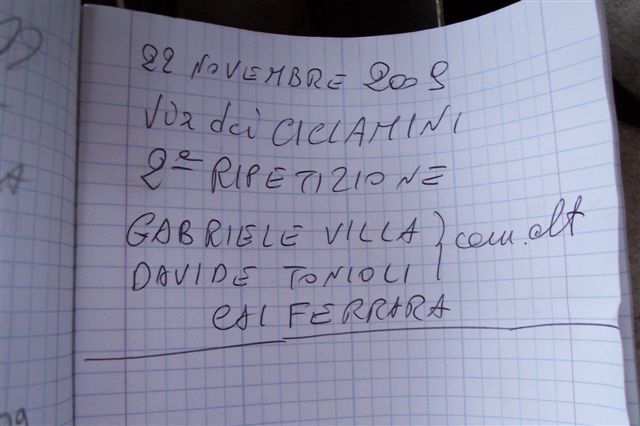 22 NOVEMBRE 2009
VIA dei CICLAMINI
2ª RIPETIZIONE
GABRIELE VILLA } com. alt
DAVIDE TONIOLI
CAI FERRARA